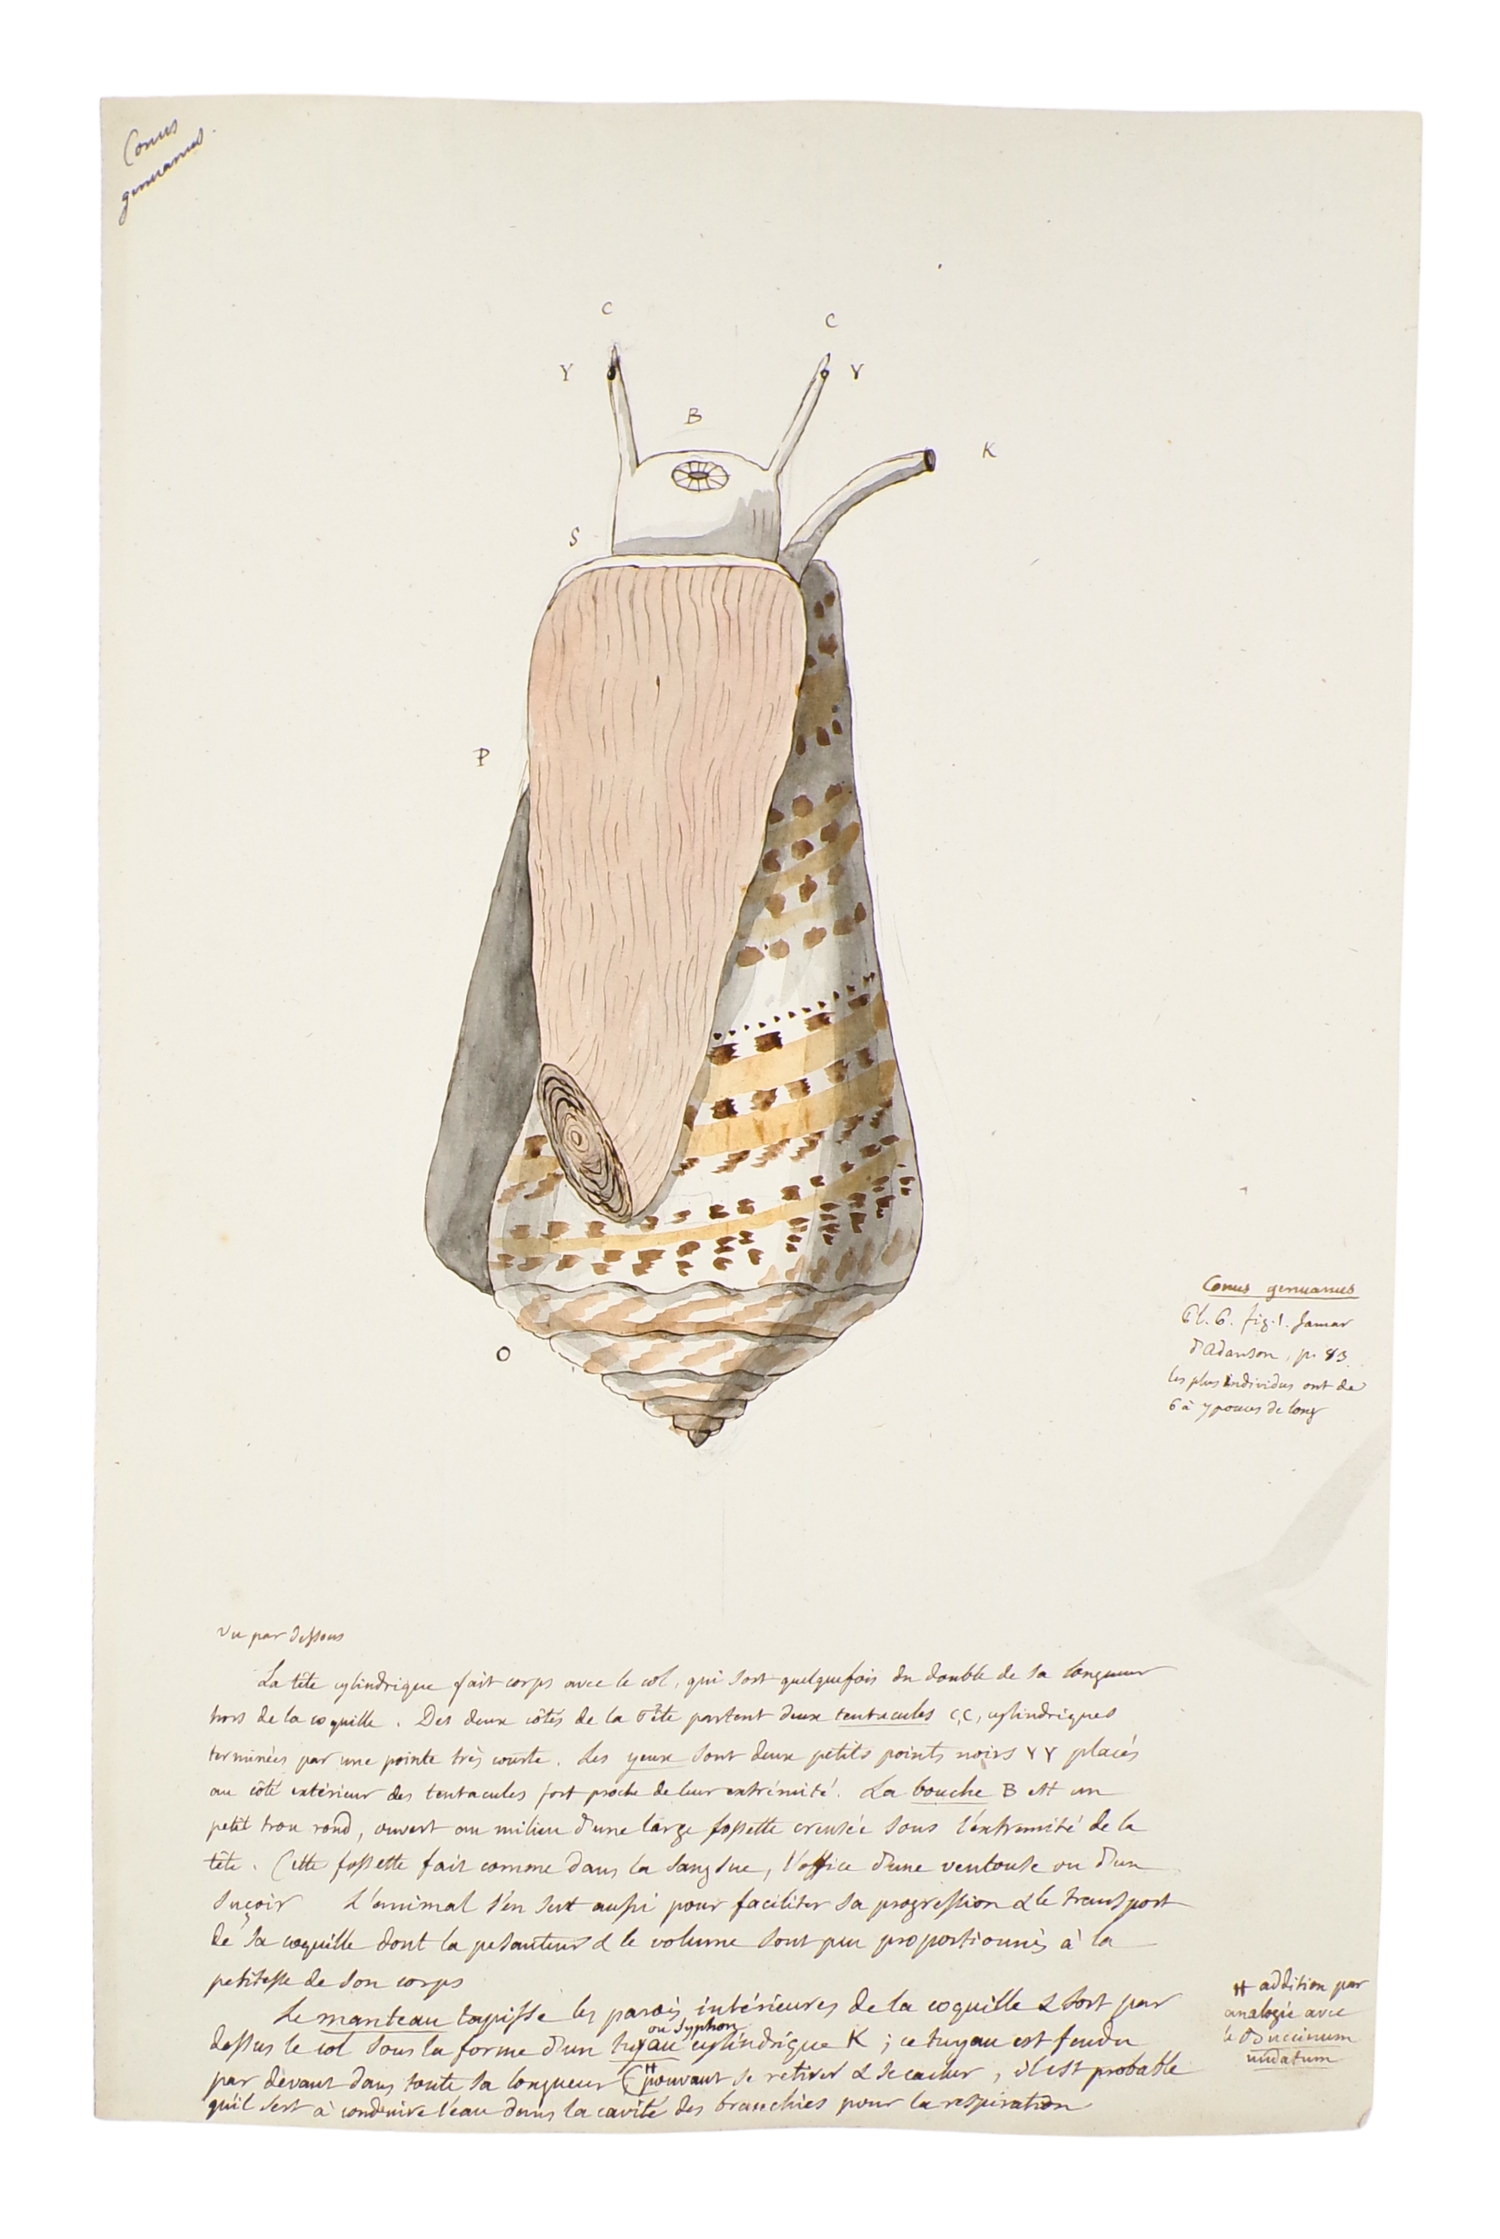 Conus
genuanus.
C
C
Y
Y
B
K
S
P
O
Conus genuanus
Pl. 6. fig. 1. Jamar
d'Adanson, p. 83.
les plus individus ont de
6 à 7 pouces de long
Vu par dessous
La tête cylindrique fait corps avec le col, qui sort quelquefois du double de sa longueur
hors de la coquille. Des deux côtés de la tête partent deux tentacules C, C, cylindriques
terminées par une pointe très courte. Les yeux sont deux petits points noirs Y Y placés
au côté extérieur des tentacules fort proche de leur extrémité. La bouche B est un
petit trou rond, ouvert au milieu d'une large fossette creusée sous l'extremité de la
tête. Cette fossette fait comme dans la sangsue, l'office d'une ventouse ou d'un
suçoir L'animal s'en sert aussi pour faciliter sa progression & le transport
de sa coquille dont la pesanteur & le volume sont peu proportionnés à la
petitesse de son corps
Le manteau tapisse les parois intérieures de la coquille & sort par
dessus le col sous la forme d'un tuyau ou syphon cylindrique K ; ce tuyau est fendu
par devant dans toute sa longueur (# pouvant se retirer & se cacher, il est probable
qu'il sert à conduire l'eau dans la cavité des branchies pour la respiration
# addition par
analogie avec
le Buccinum
undatum